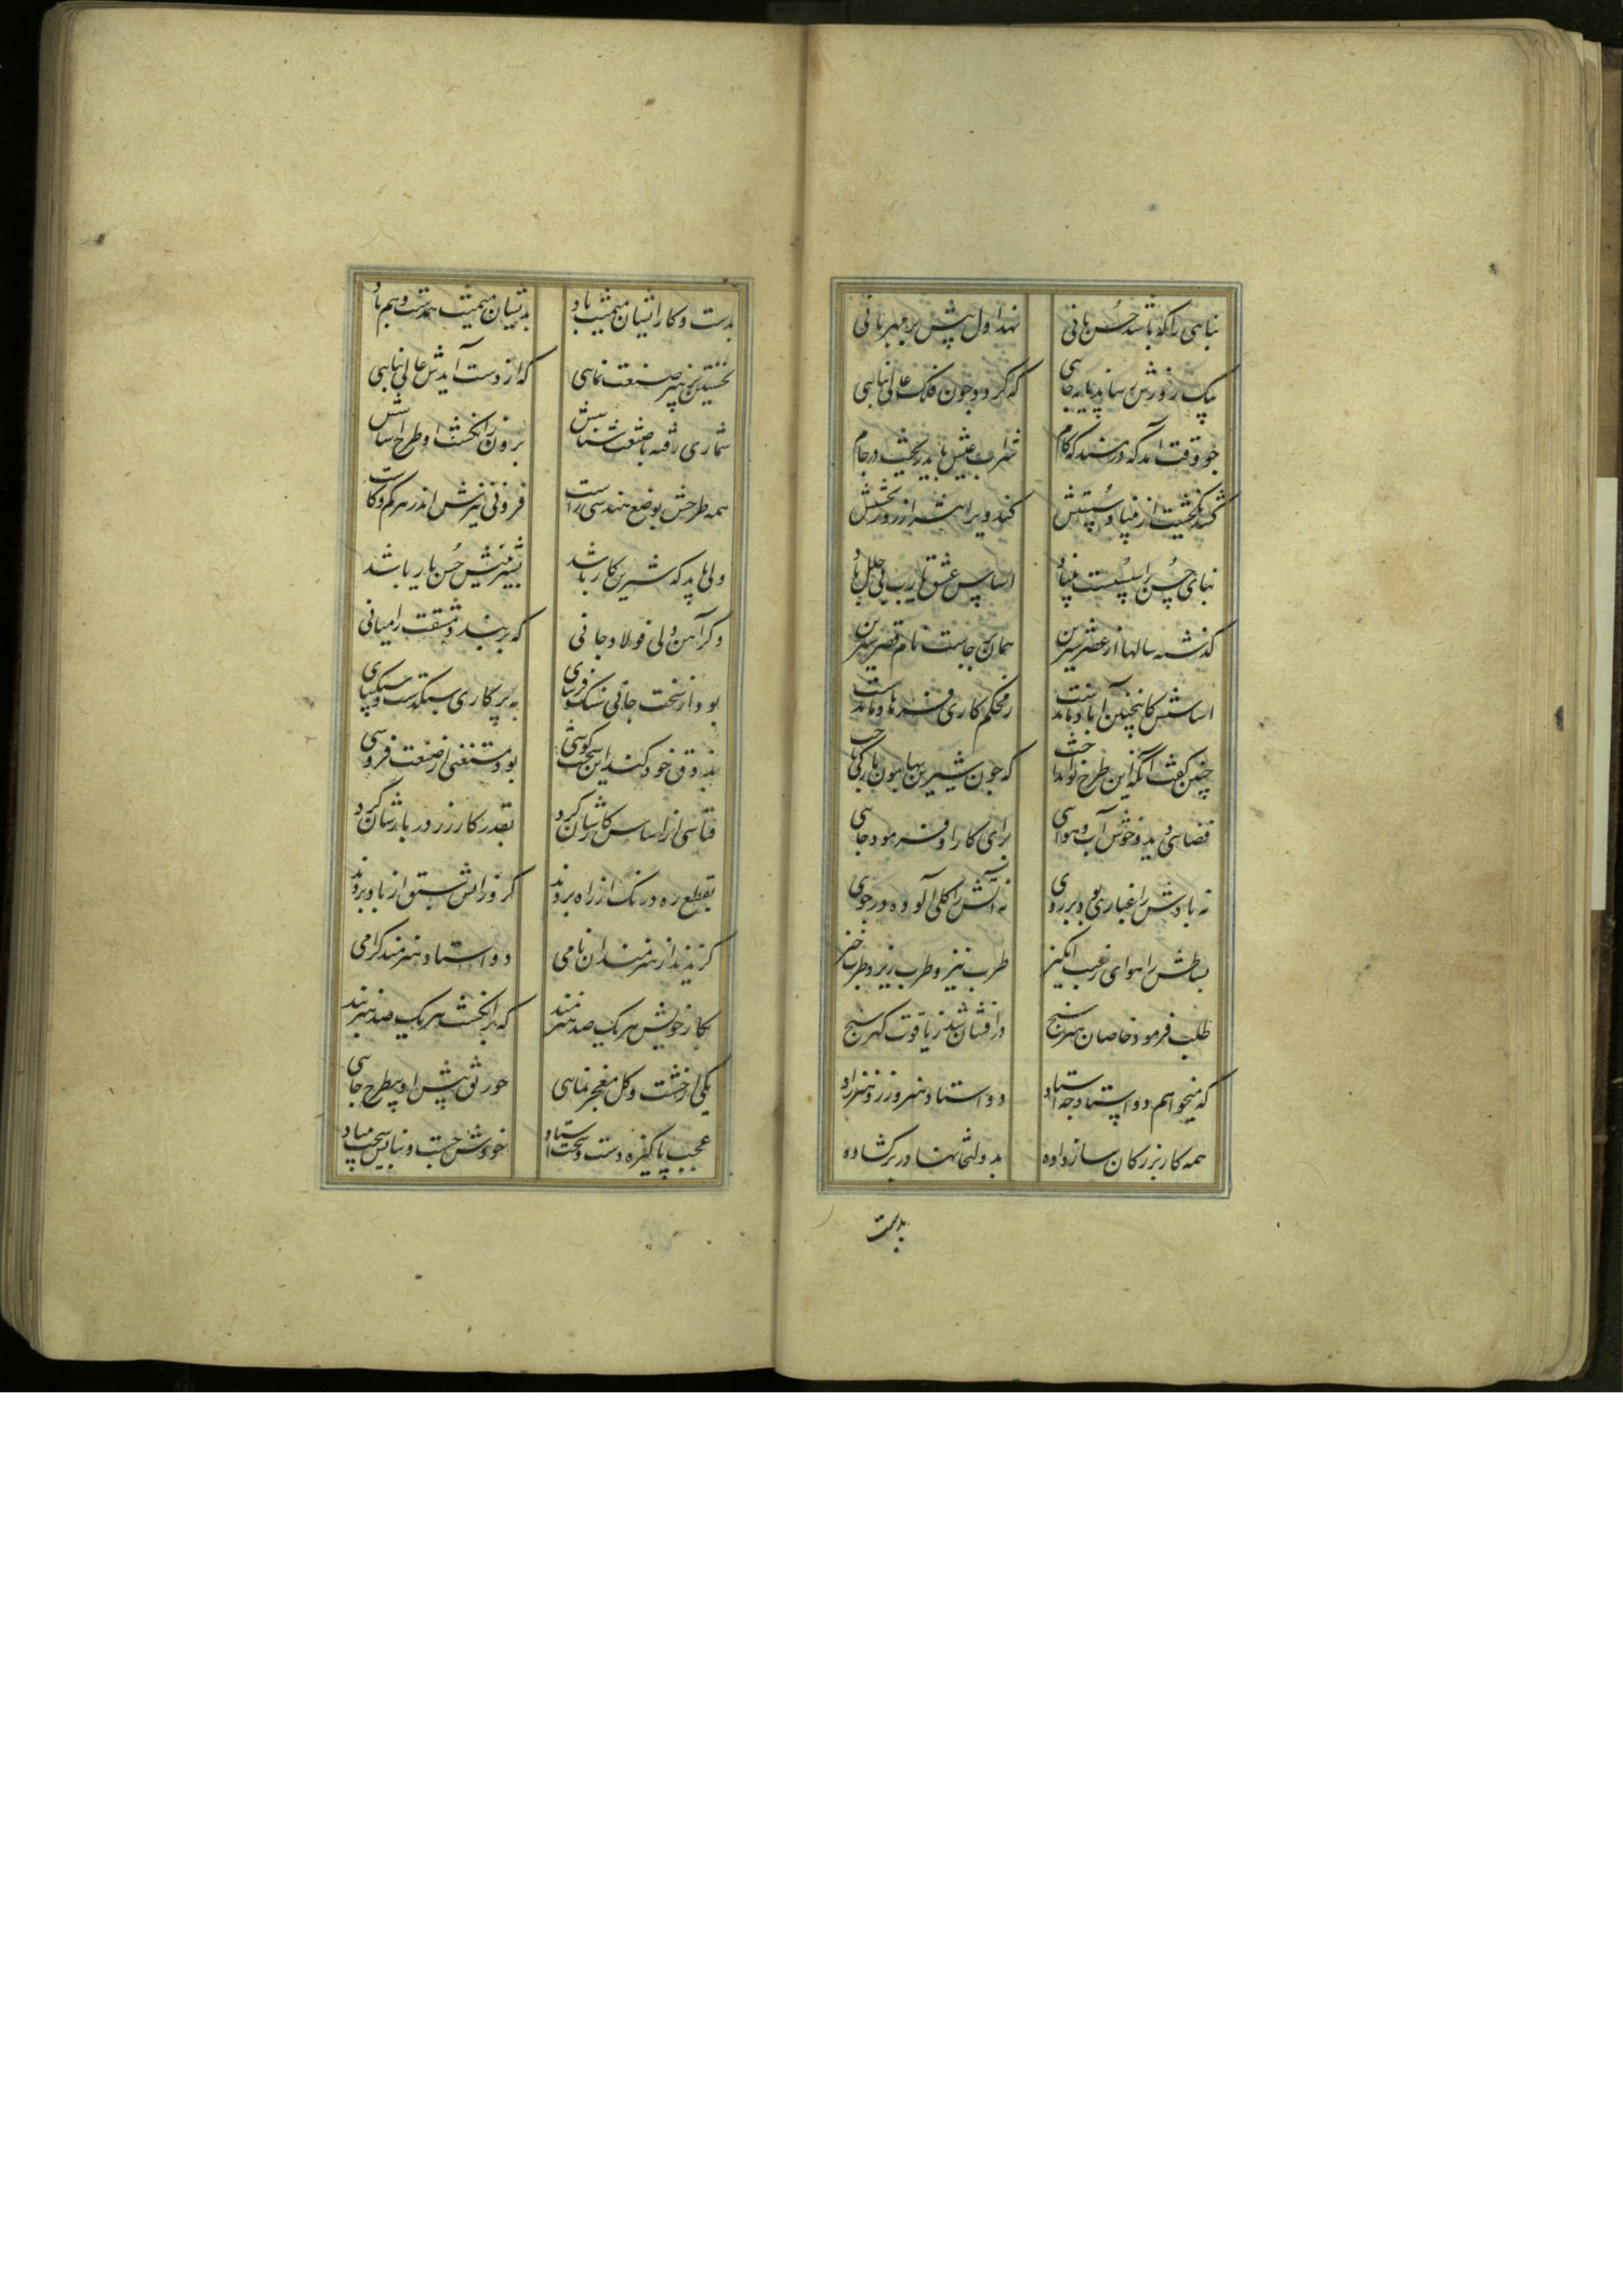 بنایی را که باشد حسن بانی نهد اول بنایش بر مهربانی
بیک روزش رساند پایه جایی که گردد چون فلک عالی بنایی
چو وقت آمد که در مسند که کام شراب عیش باید ریخت در جام
کند نگذشت از بنیاد سستش کند ویرانتر از روز نخستش
بنای حسن را سست بنیاد اساس عشق یارب بی خلل باد
گذشته سالها از عصر شیرین همان برجاست نام قصر شیرین
اساسش کاینچنین آباد ماندست ز محکم کاری فرهاد ماندست
چنین گفت آنکه این طرح نو انداخت که چون شیرین بهامون بارگی تاخت
فضایی دید و خوش آب و هوایی برای کار او فرمود جایی
نه بادش را غباری بود بر روی نه آبش را گلی آلوده در جوی
بساطش را هوای رغبت انگیز طرب خیز و طرب ریز و طرب خیز
طلب فرمود خاصان هنر سنج درافشان شد ز یاقوت گهر سنج
که میخواهم دو استاد و چه استاد دو استاد هنرورز و هنرزاد
همه کار بزرگان ساز داده بدولتخانها در برگشاده
بدست
بدست و کار ایشان میمنت باد بدیشان میمنت همدست و همزاد
نخستین پر هنر صنعت نمایی که از دست آیدش عالی بنایی
شماری رفته با صنعت شناسش برون ز انگشت او طرح اساسش
همه طرحش بوضع هندسی راست فزونی نیزش اندر هر کم و کاست
ولی باید که شیرین کار باشد بشیرینیش حسن یار باشد
دگر آهن دلی فولاد جانی که بر بندد مشقت را میانی
بود از سخت جانی سنگ فرسای به پرکاری سبکدست و سبکپای
بذوق خود کند این سخت کوشی بود مستغنی از صنعت فروشی
قیاسی از اساس کارشان کرد بقدر کار زر در بارشان کرد
بقطع ره درنگ از راه بردند گرو زایشان سبق از باد بردند
گزیدند از هنرمندان نامی دو استاد هنرمند گرامی
بکار خویش هر یک صد هنرمند که بر انگشت هر یک صد هنر بند
یکی از خشت و گل معجز نمایی خورنق پیش او بیطرح جایی
عجب پاکیزه دست و سخت استاد خودش چست و بنایش سخت بنیاد